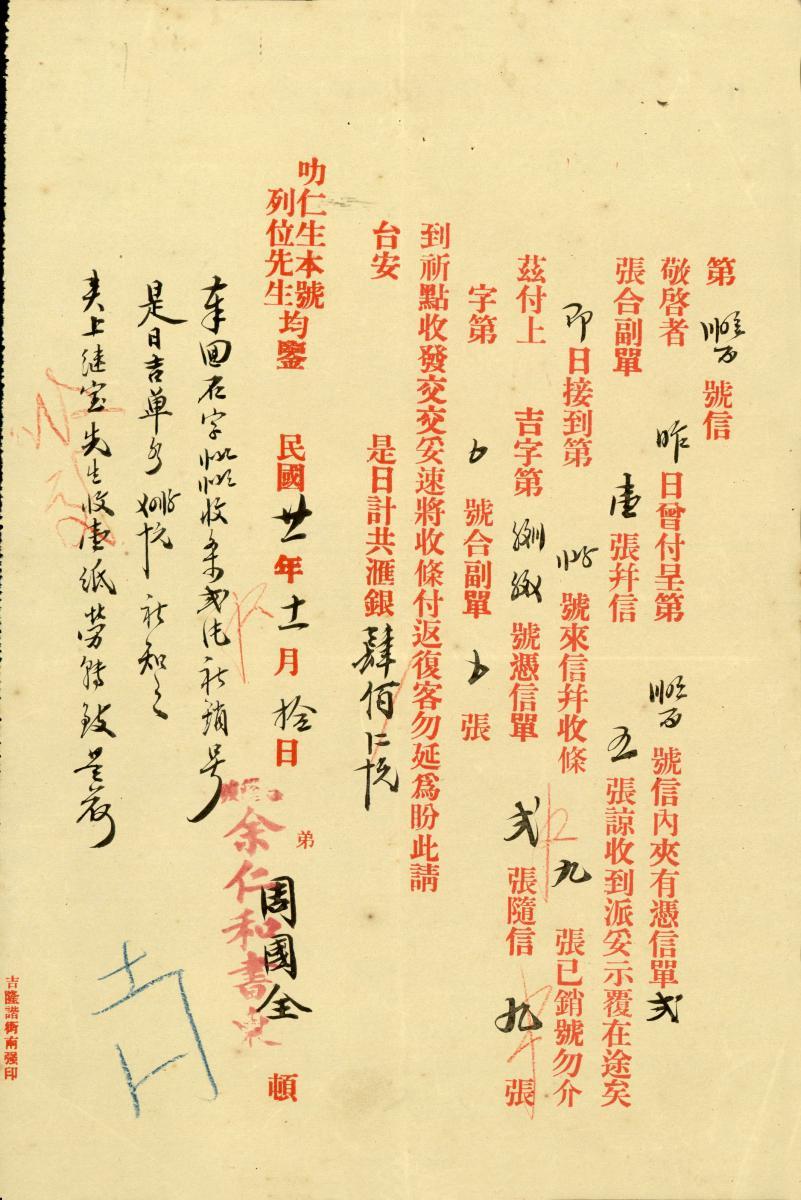 第 號信
敬啓者 昨 日曾付呈第 號信內夾有憑信單 弍
張合副單 壹 張幷信 五 張諒收到派妥示覆在途矣
即 日接到第 號來信幷收條 九 張已銷號勿介
茲付上 吉字第 號憑信單 弍 張隨信 九 張
字第 號合副單 張
到祈點收發交交妥速將收條付返復客勿延爲盼此請
台安 是日計共滙銀 肆佰
叻仁生本號
列位先生 均鑒 民國 廿一 年 十一 月 拾 日
弟 周國全 頓
余仁和書柬
奉回石字 收条弍 祈銷号
是日吉單 祈知之
夾上継宝先生收壹紙勞轉致是荷
吉隆諧街南强印